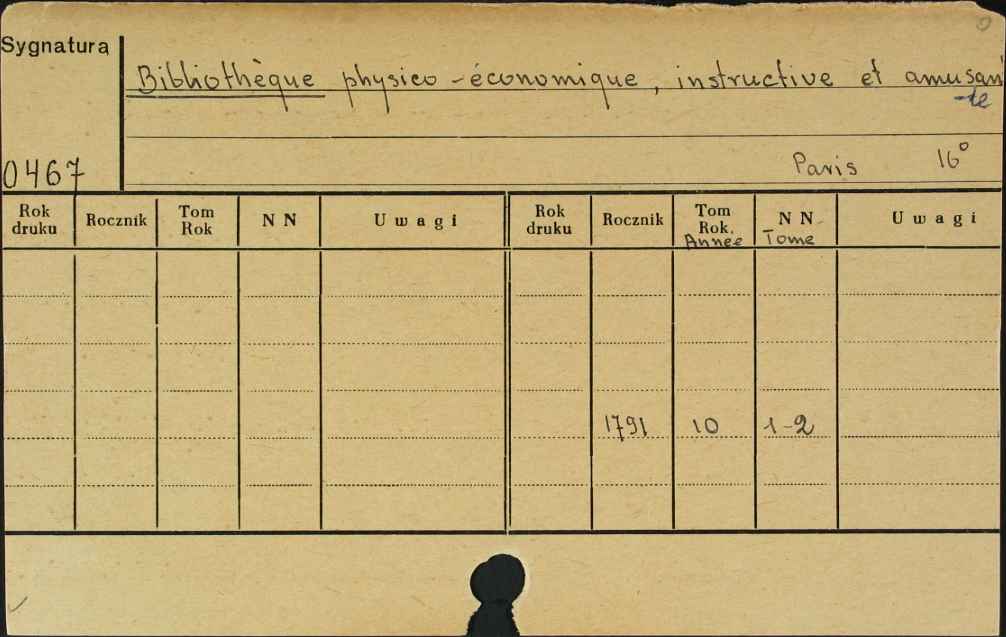 0
Sygnatura
Bibliothèque physico-économique, instructive et amusan
-te
0467
Paris 16°
Rok druku Rocznik Tom Rok N N Uwagi Rok druku Rocznik Tom Rok. Annee N N Tome Uwagi
1791 10 1-2